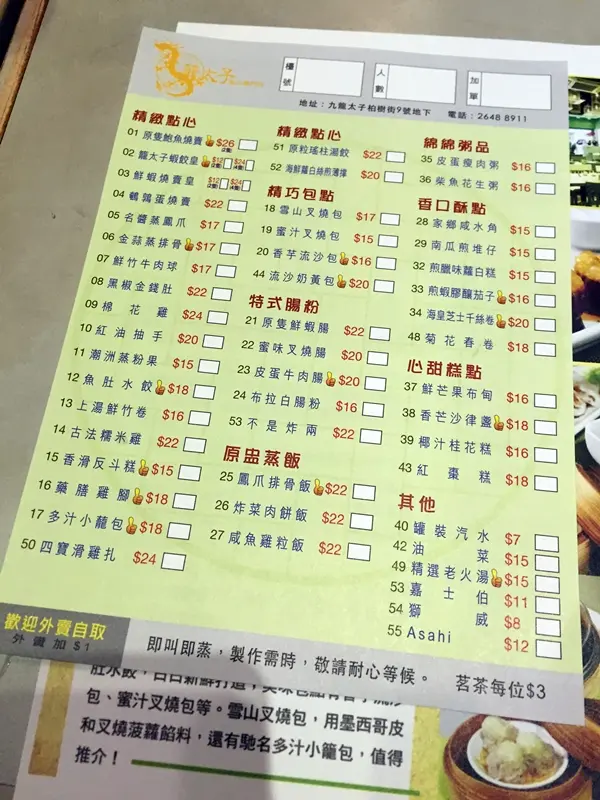 龍太子
櫃號
人數
加單
地址：九龍太子柏樹街9號地下　電話：2648 8911
精緻點心
01 原隻鮑魚燒賣 $26 (2隻)
02 龍太子蝦餃皇 $12 (2隻) $24 (4隻)
03 鮮蝦燒賣皇 $12 (2隻) $24 (4隻)
04 鵪鶉蛋燒賣 $22
05 名醬蒸鳳爪 $17
06 金蒜蒸排骨 $17
07 鮮竹牛肉球 $17
08 黑椒金錢肚 $22
09 棉花雞 $24
10 紅油抽手 $20
11 潮洲蒸粉果 $15
12 魚肚水餃 $18
13 上湯鮮竹卷 $16
14 古法糯米雞 $22
15 香滑反斗糕 $15
16 藥膳雞腳 $18
17 多汁小籠包 $18
50 四寶滑雞扎 $24
精緻點心
51 原粒瑤柱湯餃 $22
52 海鮮蘿白絲煎薄撑 $20
精巧包點
18 雪山叉燒包 $17
19 蜜汁叉燒包 $15
20 香芋流沙包 $16
44 流沙奶黃包 $20
特式腸粉
21 原隻鮮蝦腸 $22
22 蜜味叉燒腸 $20
23 皮蛋牛肉腸 $20
24 布拉白腸粉 $16
53 不是炸兩 $22
原盅蒸飯
25 鳳爪排骨飯 $22
26 炸菜肉餅飯 $22
27 咸魚雞粒飯 $22
綿綿粥品
35 皮蛋瘦肉粥 $16
36 柴魚花生粥 $16
香口酥點
28 家鄉咸水角 $15
29 南瓜煎堆仔 $15
32 煎臘味蘿白糕 $15
33 煎蝦膠釀茄子 $16
34 海皇芝士千絲卷 $20
48 菊花春卷 $18
心甜糕點
37 鮮芒果布甸 $16
38 香芒沙律盞 $18
39 椰汁桂花糕 $16
43 紅棗糕 $18
其他
40 罐裝汽水 $7
42 油菜 $15
49 精選老火湯 $15
53 嘉士伯 $11
54 獅威 $8
55 Asahi $12
歡迎外賣自取
外賣加$1
即叫即蒸，製作需時，敬請耐心等候。
茗茶每位$3
包、蜜汁叉燒包等。雪山叉燒包，用墨西哥皮
和叉燒菠蘿餡料，還有馳名多汁小籠包，值得
推介！